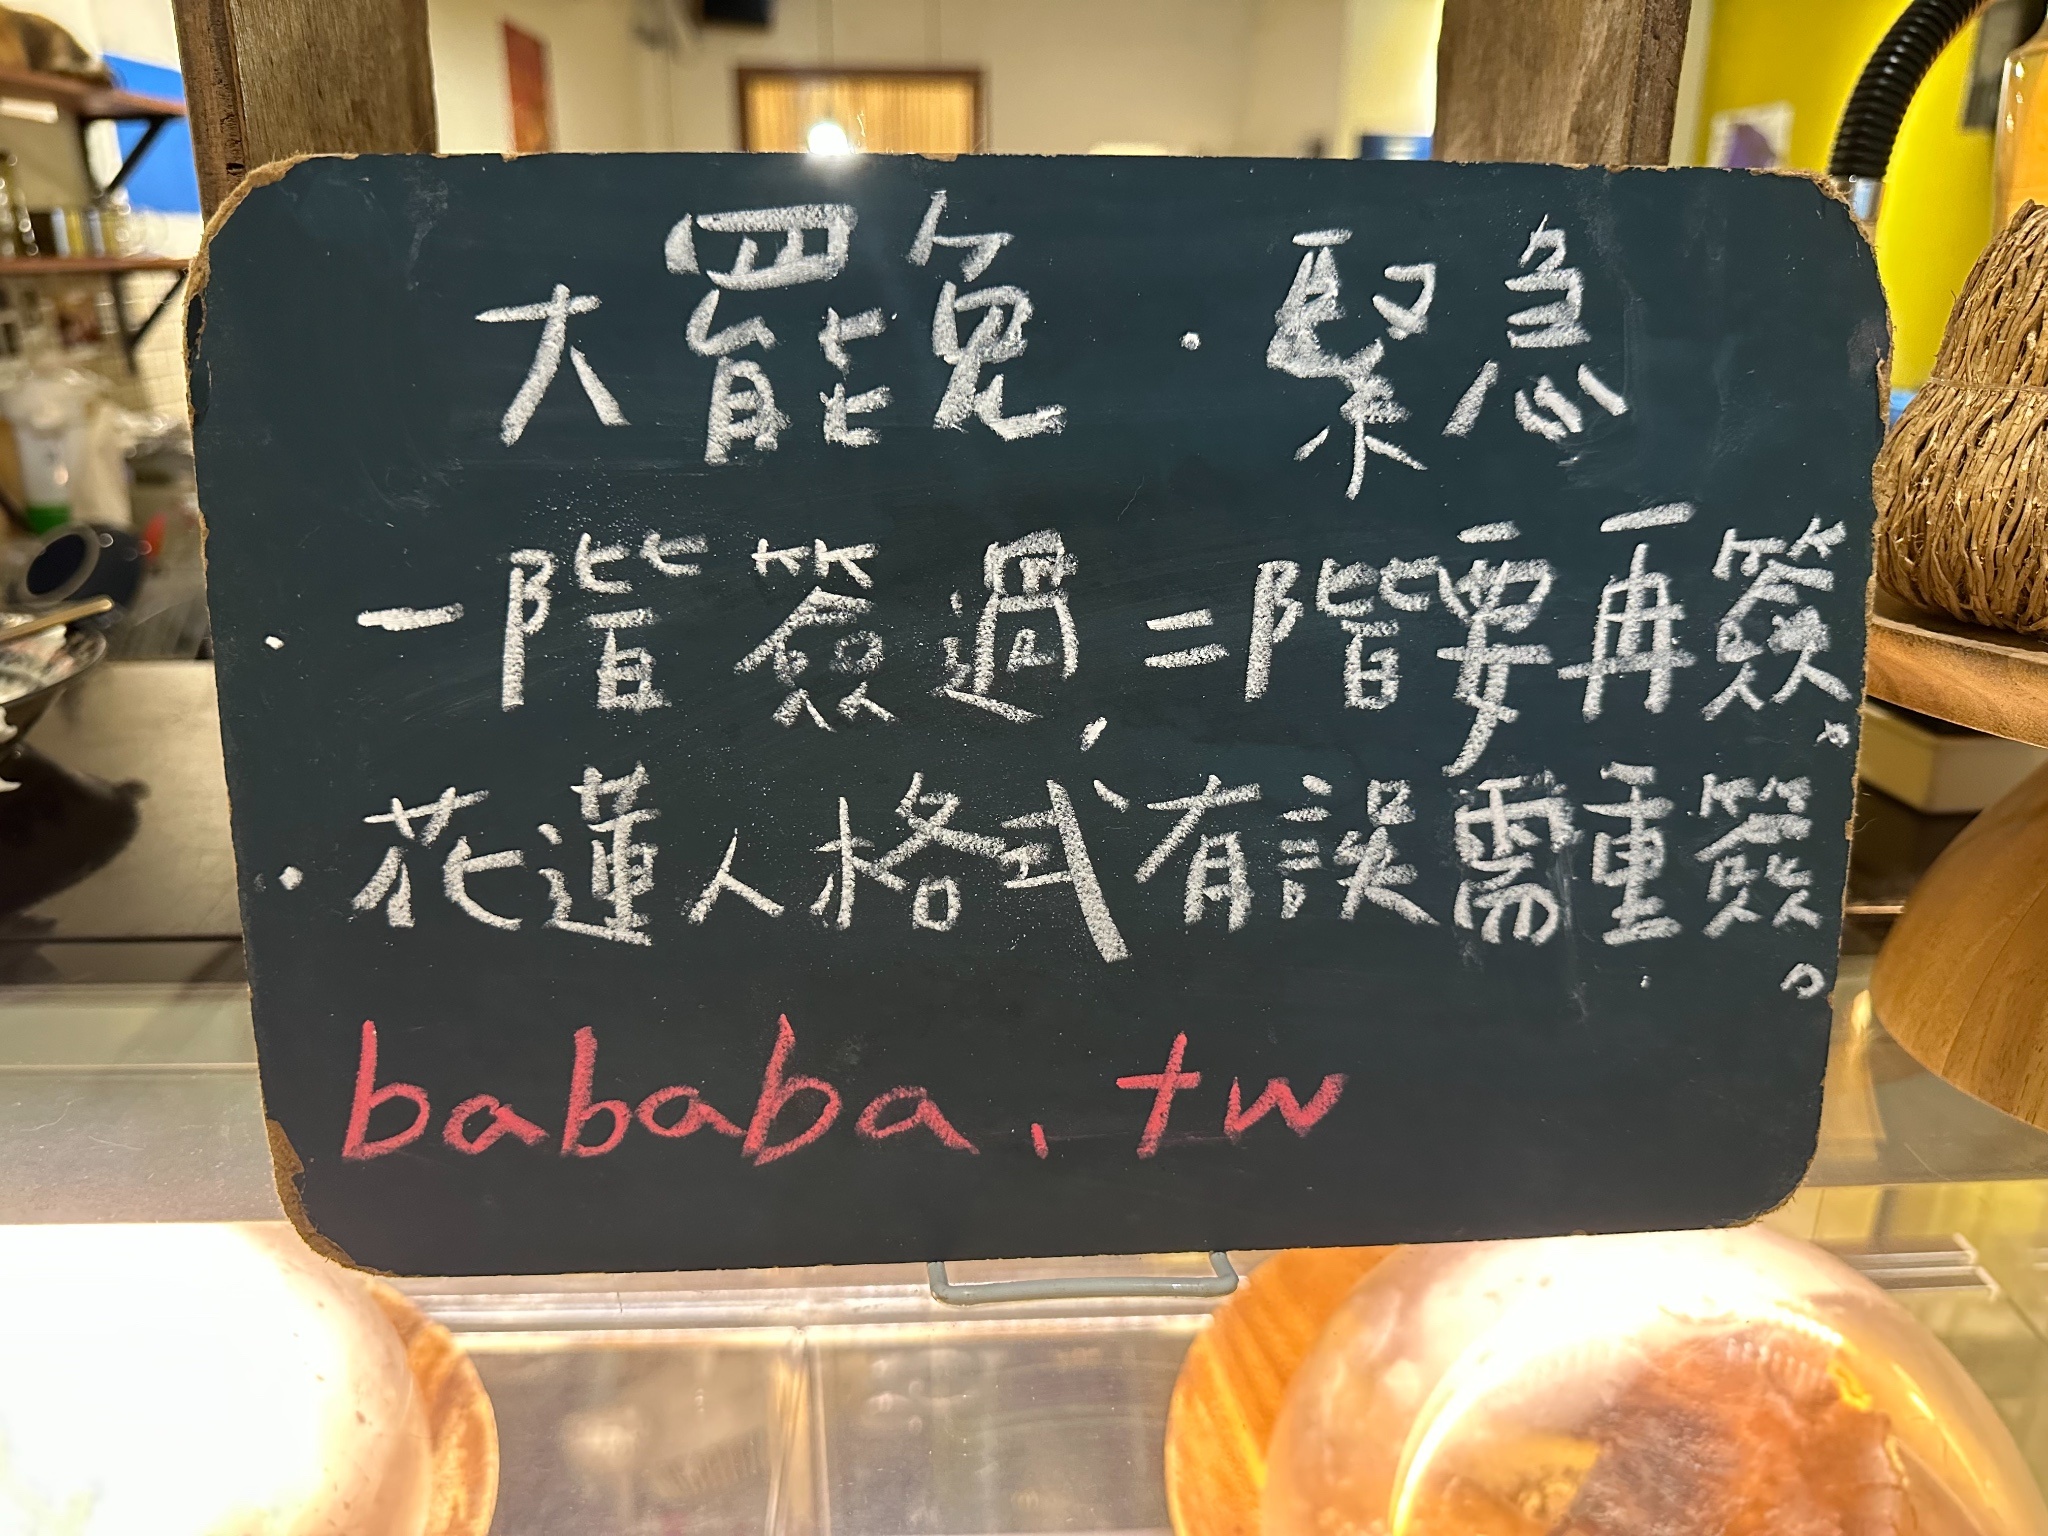 大罷免・緊急
・一階簽過，二階要再簽。
・花蓮人格式有誤需重簽。
bababa.tw